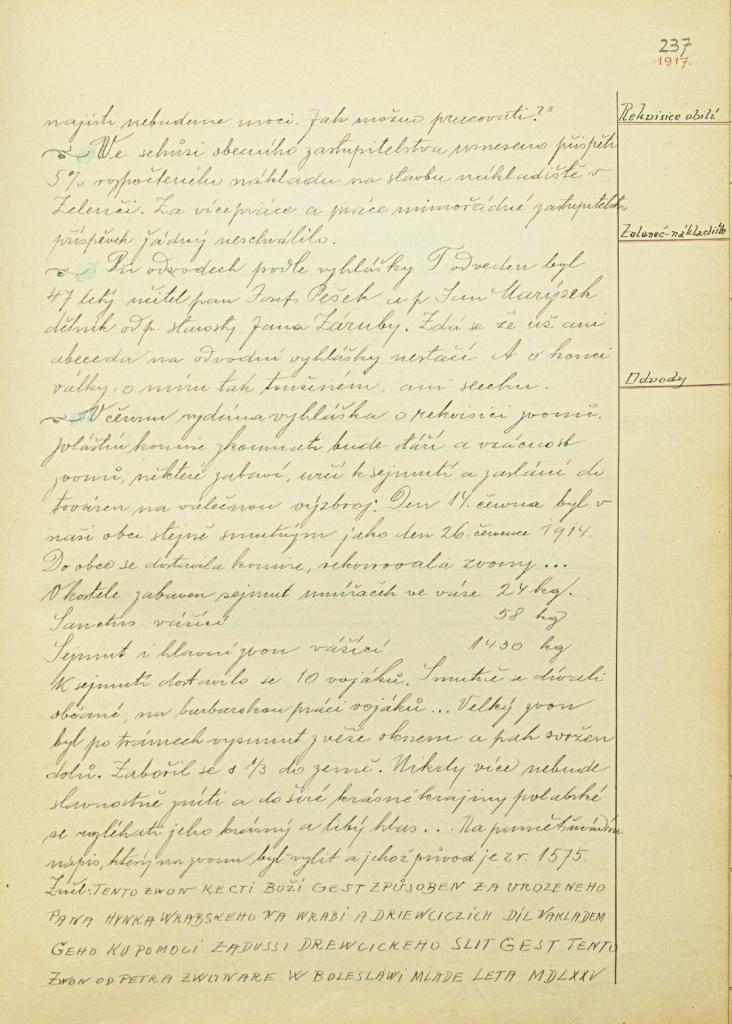 237
1917.
najísti nebudeme moci. Jak možno pracovati?"
Rekvisice obilí
Ve schůzi obecního zastupitelstva usneseno přispěti
5% rozpočteného nákladu na stavbu nákladiště v
Zelenči. Za vícepráce a práce mimořádné zastupitelstvo
Zeleneč-nákladiště
příspěvek žádný neschválilo.
Při odvodech podle vyhlášky T odveden byl
47 letý učitel pan Josef Pešek a p. Jan
dělník od p. starosty Jana Záruby. Zdá se že už ani
abeceda na odvodní vyhlášky nestačí. A o konci
války, o míru tak touženém, ani slechu.
Odvody
V červnu vydána vyhláška o rekvisici zvonů.
Zvláštní komise zkoumati bude stáří a vzácnost
zvonů, některé zabaví, určí k sejmutí a zaslání do
továren na válečnou výzbroj. Den 14. června byl v
naší obci stejně smutným jako den 26. července 1914.
Do obce se dostavila komise, rekvirovala zvony...
V kostele zabaven sejmut umíráček ve váze 24 kg.
Sanctus vážící 58 kg
Sejmut i hlavní zvon vážící 1430 kg
K sejmutí dostavilo se 10 vojáků. Smutně se dívali
občané, na barbarskou práci vojáků... Velký zvon
byl po trámech vysunut z věže oknem a pak svržen
dolů. Zabořil se s 1/3 do země. Nikdy více nebude
slavnostně zníti a do širé krásné krajiny polabské
se rozléhati jeho krásný a libý hlas... Na paměť uvádím
nápis, který na zvonu byl vylit a jehož původ je z r. 1575.
Zněl: TENTO ZWON KE CTI BOŽÍ GEST ZPŮSOBEN ZA UROZENEHO
PANA HYNKA WRABSKEHO NA WRABI A DRIEWCICZICH DÍL NAKLADEM
GEHO KU POMOCI ZADUSSI DREWCICKEHO SLIT GEST TENTO
ZWON OD PETRA ZWONARE W BOLESLAWI MLADE LETA MDLXXV